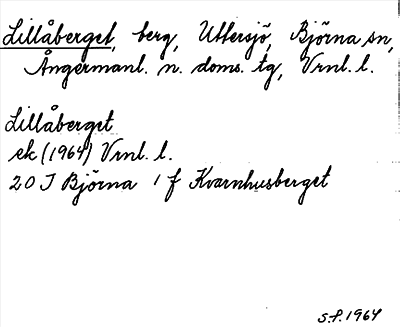 Lillåberget, berg, Uttersjö, Björna sn,
Ångermanl. n. doms. tg, Vrnl. l.
Lillåberget
ek (1964) Vrnl. l.
20 J Björna 1 f Kvarnhusberget
S.P. 1964